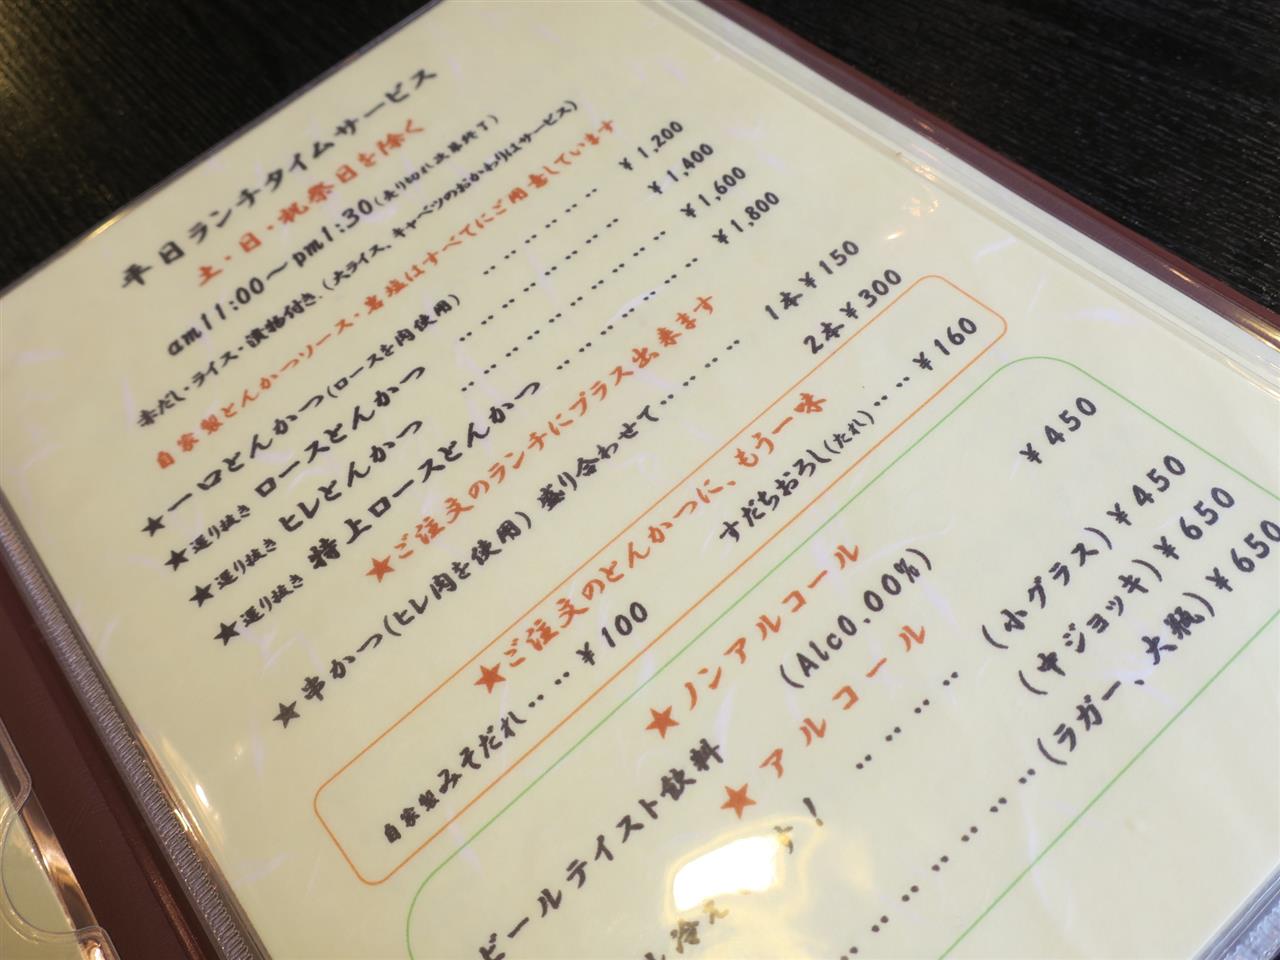 平日ランチタイムサービス
土・日・祝祭日を除く
am11:00～pm1:30(売り切れ次第終了)
赤だし・ライス・漬物付き(大ライス、キャベツのおかわりはサービス)
自家製とんかつソース・岩塩はすべてにご用意しています
★一口とんかつ(ロース肉使用) ‥‥‥‥‥ ¥1,200
★選り抜き ロースとんかつ ‥‥‥‥‥ ¥1,400
★選り抜き ヒレとんかつ ‥‥‥‥‥ ¥1,600
★選り抜き 特上ロースとんかつ ‥‥‥‥ ¥1,800
★ご注文のランチにプラス出来ます
★串かつ(ヒレ肉を使用)盛り合わせて‥‥‥ 1本¥150
2本¥300
★ご注文のとんかつに、もう一味
自家製みそだれ‥‥¥100 すだちおろし(たれ)‥‥¥160
★ノンアルコール
ビールテイスト飲料 (Alc0.00%) ¥450
★アルコール
冷え す! ‥‥‥ (小グラス)¥450
‥‥‥‥ (中ジョッキ)¥650
‥‥‥ (ラガー、大瓶)¥650